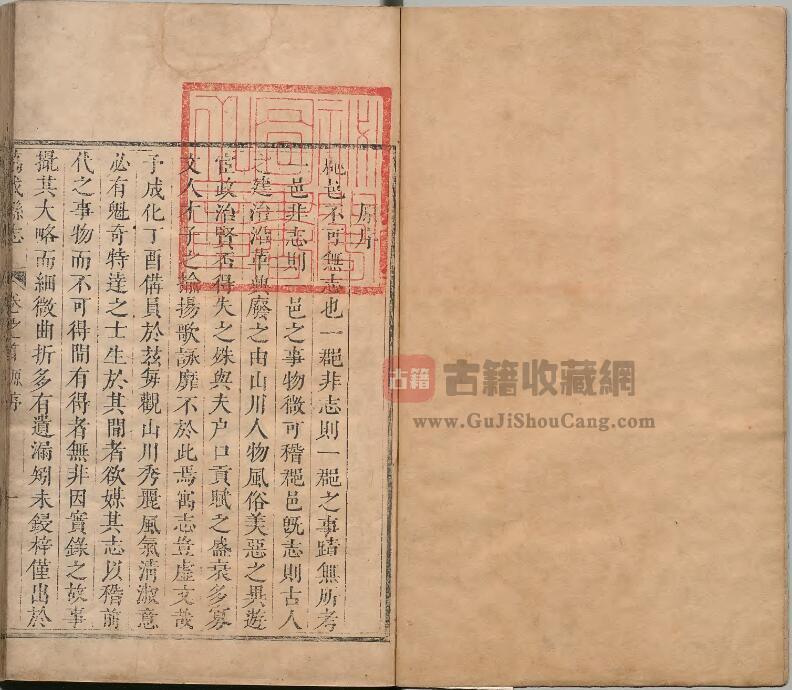 原序
郡邑不可無志也一郡非志則一郡之事蹟無所考
一邑非志則一邑之事物微可稽郡邑旣志則古人
之建治沿革興廢之由山川人物風俗美惡之異遊
宦政治賢否得失之殊與夫户口貢賦之盛衰多寡
文人才子之揄揚歌詠靡不於此焉寓志豈虛文哉
予成化丁酉備員於茲每觀山川秀麗風氣淸淑意
必有魁奇特達之士生於其間者欲媒其志以稽前
代之事物而不可得間有得者無非因實錄之故事
撮其大略而細微曲折多有遺漏矧未鋟梓僅出於
縣志 卷之首 原序 一
古籍 古籍收藏網
www.GuJiShouCang.com